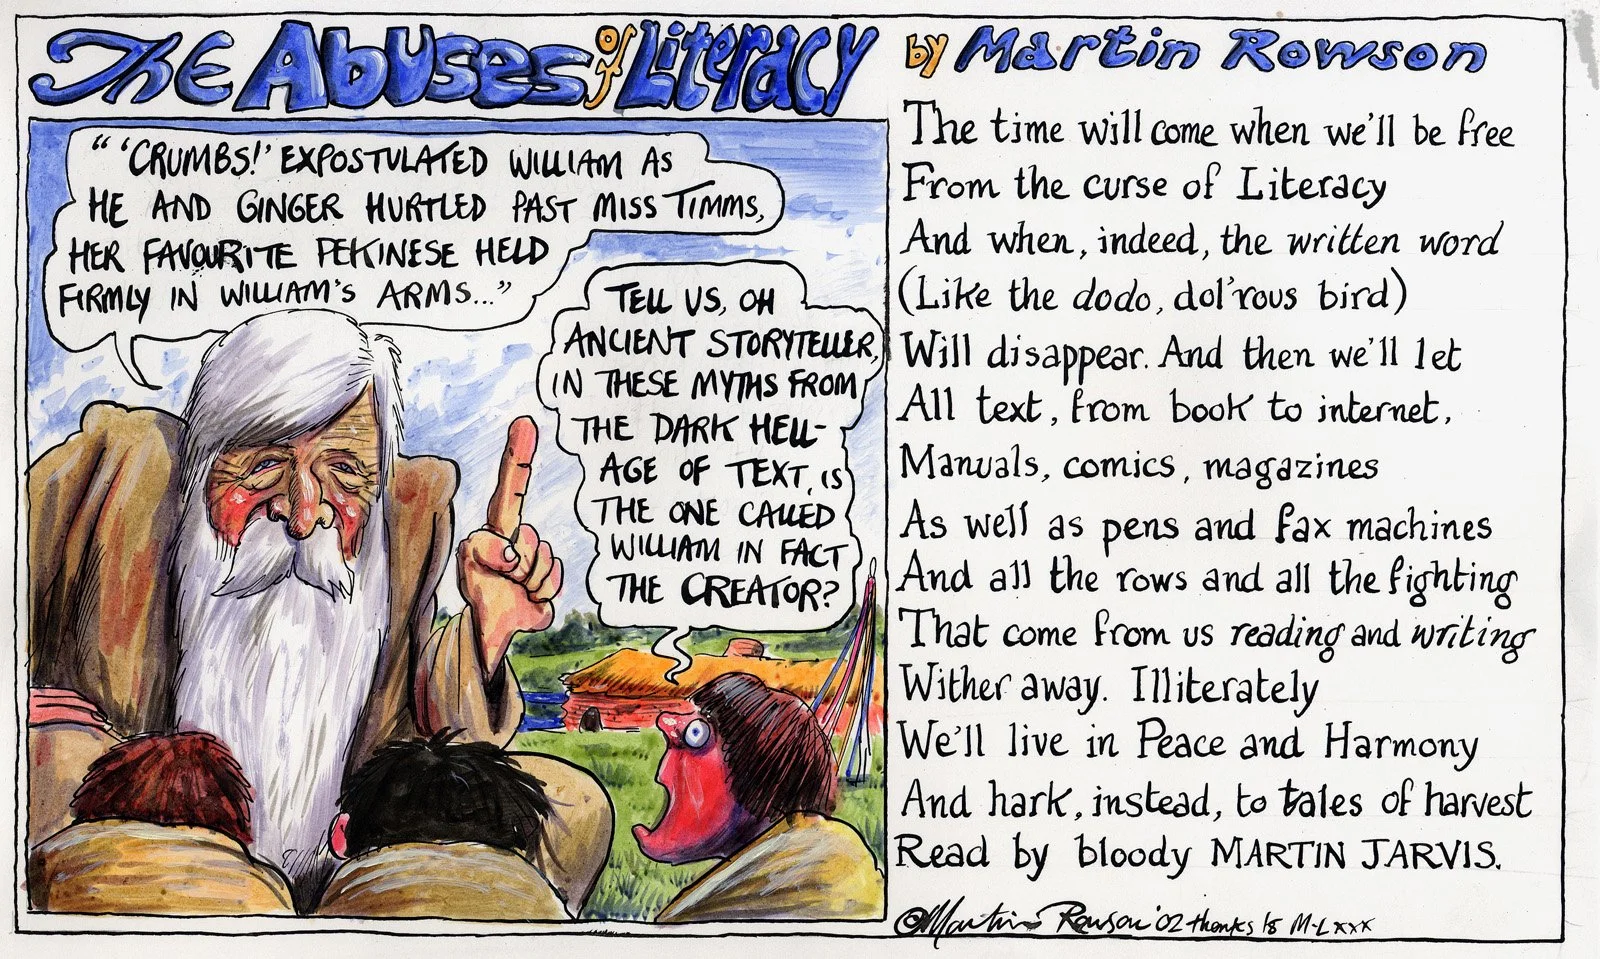 The Abuses of Literacy by Martin Rowson
"'CRUMBS!' EXPOSTULATED WILLIAM AS
HE AND GINGER HURTLED PAST MISS TIMMS,
HER FAVOURITE PEKINESE HELD
FIRMLY IN WILLIAM'S ARMS..."
TELL US, OH
ANCIENT STORYTELLER,
IN THESE MYTHS FROM
THE DARK HELL-
AGE OF TEXT, IS
THE ONE CALLED
WILLIAM IN FACT
THE CREATOR?
The time will come when we'll be free
From the curse of Literacy
And when, indeed, the written word
(Like the dodo, dol'rous bird)
Will disappear. And then we'll let
All text, from book to internet,
Manuals, comics, magazines
As well as pens and fax machines
And all the rows and all the fighting
That come from us reading and writing
Wither away. Illiterately
We'll live in Peace and Harmony
And hark, instead, to tales of harvest
Read by bloody MARTIN JARVIS.
©Martin Rowson '02 thanks M-L xxx